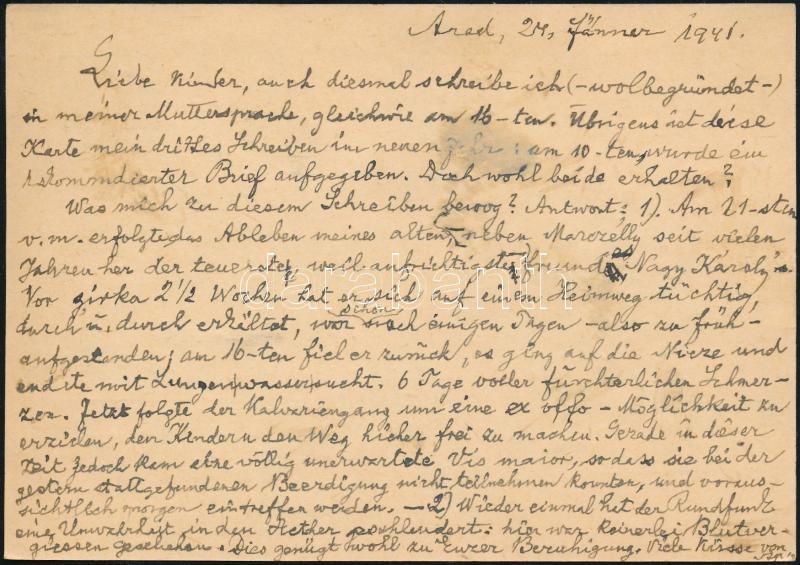 Arad, 24, Jänner 1941.
Liebe Kinder, auch diesmal schreibe ich (-wolbegründet-)
in meiner Muttersprache, gleichwie am 16-ten. Übrigens ist diese
Karte mein drittes Schreiben im neuen Jahr: am 10-ten wurde ein
rekommdierter Brief aufgegeben. Doch wohl beide erhalten?
Was mich zu diesem Schreiben bewog? Antwort: 1). Am 21-sten
v.m. erfolgte das Ableben meines alten, neben Marczelly seit vielen
Jahren her der teuerste, weil aufrichtigste Freundes Nagy Károly's.
Vor zirka 2 1/2 Wochen hat er sich auf einem Heimweg tüchtig,
durch u. durch erkältet, war schon nach einigen Tagen -also zu früh-
aufgestanden; am 16-ten fiel er zurück, es ging auf die Niere und
endete mit Lungenwassersucht. 6 Tage voller fürchterlichen Schmer-
zen. Jetzt folgte der Kalvariengang um eine ex offo - Möglichkeit zu
erzielen, den Kindern den Weg hieher frei zu machen. Gerade in dieser
Zeit jedoch kam eine völlig unerwartete Vis maior, so dass sie bei der
gestern stattgefundenen Beerdigung nicht teilnehmen konnten, und voraus-
sichtlich morgen eintreffen werden. - 2) Wieder einmal hat der Rundfunk
eine Unwahrheit in den Aether posaunt: hier war keinerlei Blutver-
giessen geschehen. Dies genügt wohl zu Euerer Beruhigung. Viele Küsse von
darabanth